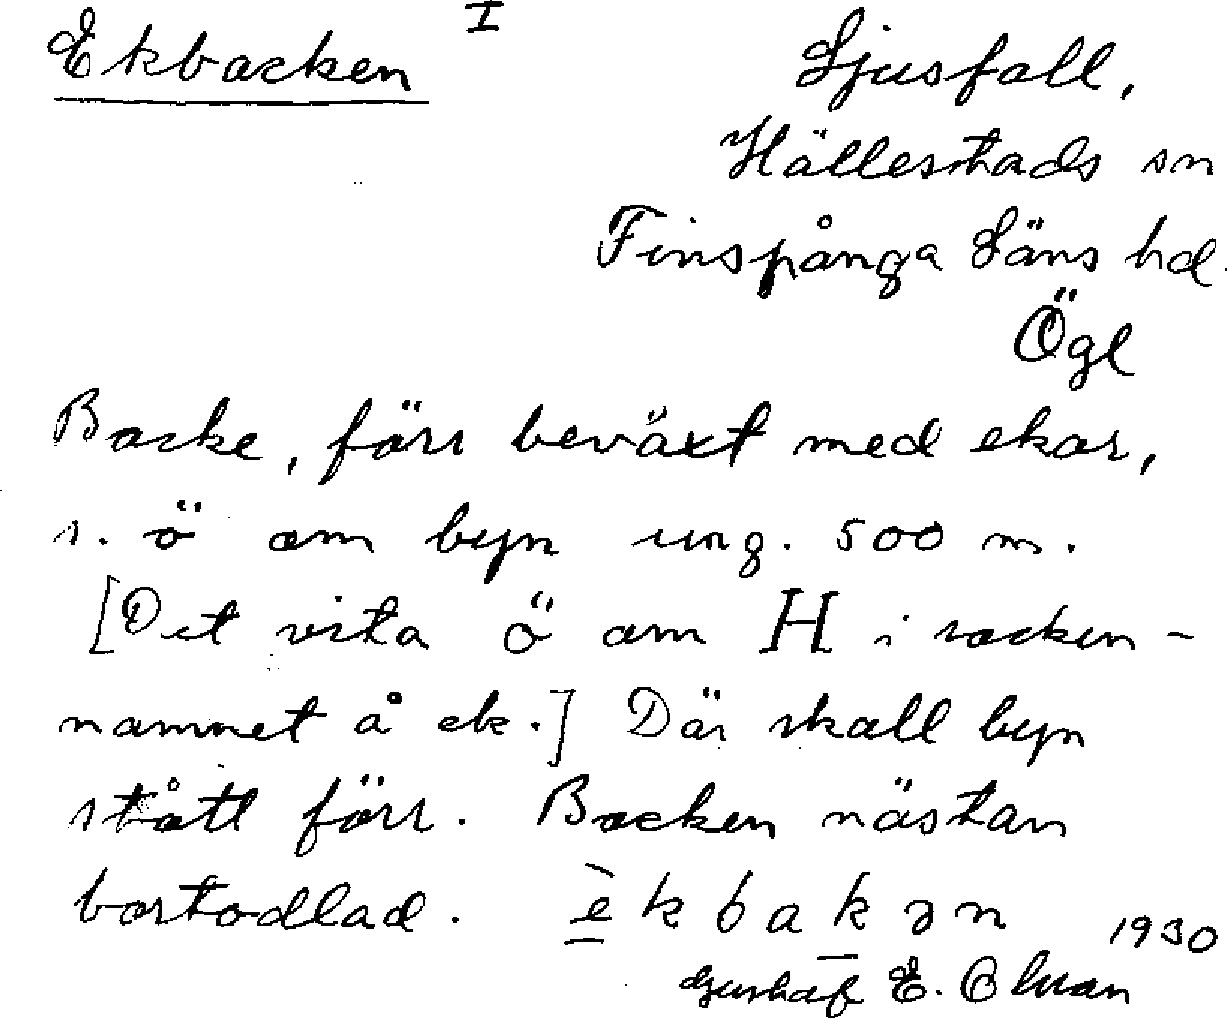 Ekbacken I
Ljusfall,
Hällestads sn
Finspånga Läns hd.
Ögl
Backe, förr beväxt med ekar,
s. ö om byn ung. 500 m.
[Det vita ö om H i socken-
namnet å ek.] Där skall byn
stått förr. Backen nästan
bortodlad. è k b a k ə n 1930
Gustaf E.